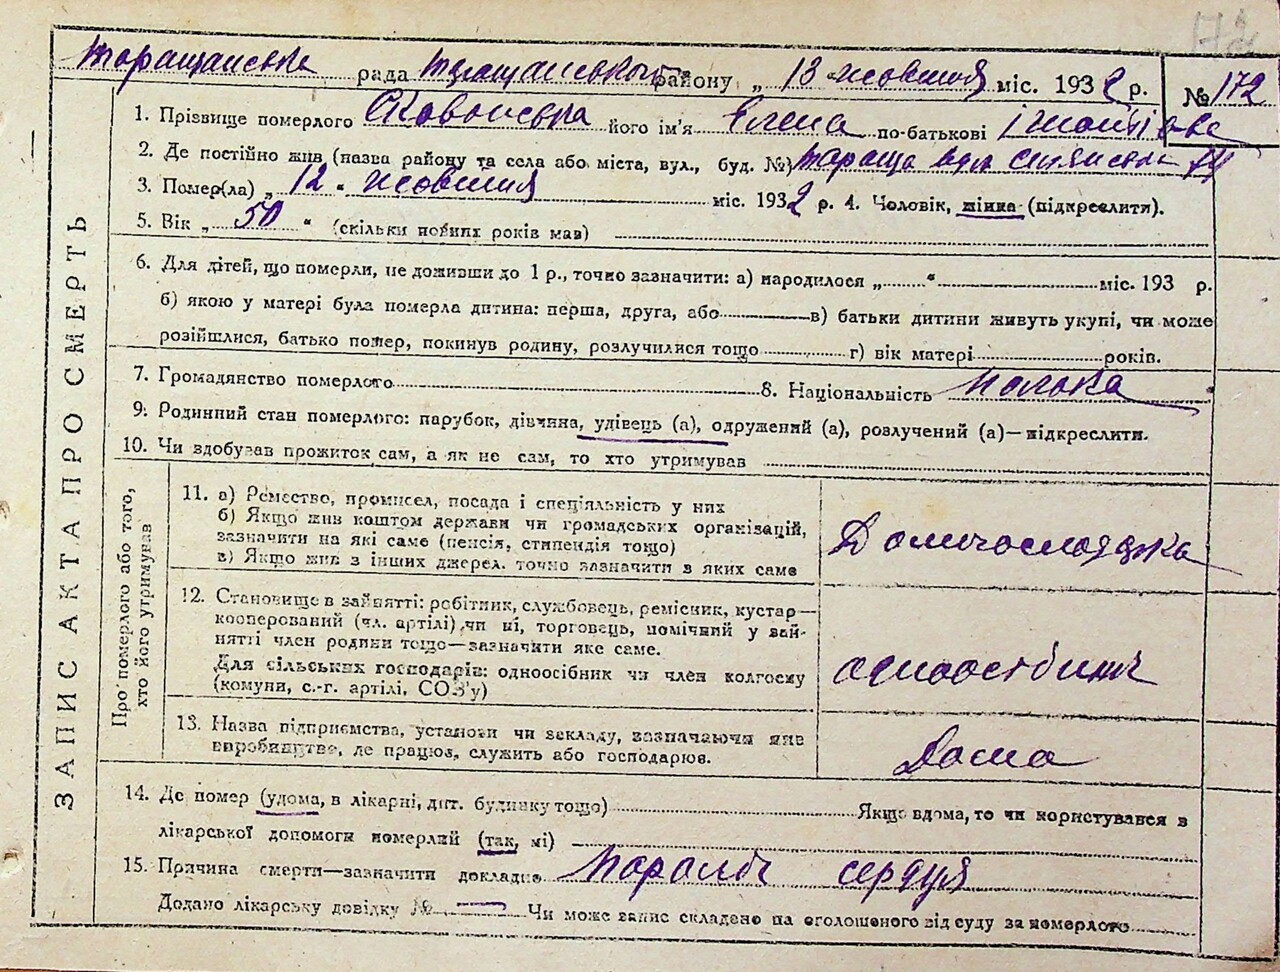 172
Таращанська рада Таращанського району „ 13 " жовтня міс. 1932 р. № 172
1. Прізвище померлого його ім'я Елена по-батькові
2. Де постійно жив (назва району та села або міста, вул., буд. №) Тараща вул
3. Помер(ла) „ 12 " жовтня міс. 1932 р. 4. Чоловік, жінка (підкреслити).
5. Вік „ 50 " (скільки повних років мав)
6. Для дітей, що померли, не доживши до 1 р., точно зазначити: а) народилося „ " міс. 193 р.
б) якою у матері була померла дитина: перша, друга, або в) батьки дитини живуть укупі, чи може
розійшлися, батько помер, покинув родину, розлучилися тощо г) вік матері років.
7. Громадянство померлого 8. Національність полька
9. Родинний стан померлого: парубок, дівчина, удівець (а), одружений (а), розлучений (а)—підкреслити.
10. Чи здобував прожиток сам, а як не сам, то хто утримував
ЗАПИС АКТА ПРО СМЕРТЬ
Про померлого або того,
хто його утримував
11. а) Ремество, промисел, посада і спеціяльність у них
б) Якщо жив коштом держави чи громадських організацій,
зазначити на які саме (пенсія, стипендія тощо)
в) Якщо жив з інших джерел. точно зазначити з яких саме
Домогосподарка
12. Становище в зайнятті: робітник, службовець, ремісник, кустар—
кооперований (чл. артілі) чи ні, торговець, помічний у зай-
нятті член родини тощо—зазначити яке саме.
Для сільських господарів: одноосібник чи член колгоспу
(комуни, с.-г. артілі, СОЗ'у)
одноосібник
13. Назва підприємства, установи чи закладу, зазначаючи яке
виробництво, де працює, служить або господарює.
Дома
14. Де помер (удома, в лікарні, дит. будинку тощо) Якщо вдома, то чи користувався з
лікарської допомоги померлий (так, ні)
15. Причина смерти—зазначити докладно Параліч сердця
Додано лікарську довідку № — Чи може запис складено на оголошеного від суду за померлого